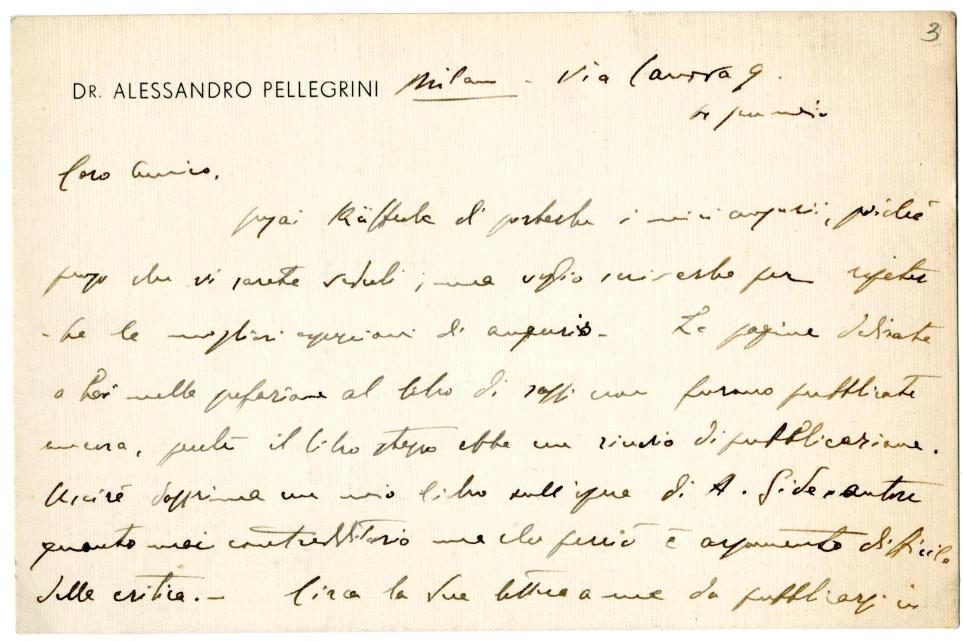 3
DR. ALESSANDRO PELLEGRINI Milano - Via Cavour 9.
Caro Amico,
pregai di porterLe i miei augurii, poichè
penso che vi sarete veduti; ma voglio scriverLe per ripeter
-Le le migliori espressioni di augurio - Le pagine dedicate
a Lei nella prefazione al libro di saggi non furono pubblicate
ancora, perchè il libro stesso ebbe un rinvio di pubblicazione.
Uscirà dapprima un mio libro sull'opera di A. Gide, autore
quanto mai contradditorio ma che perciò è argomento difficile
della critica. - Circa la Sua lettera a me da pubblicarsi in